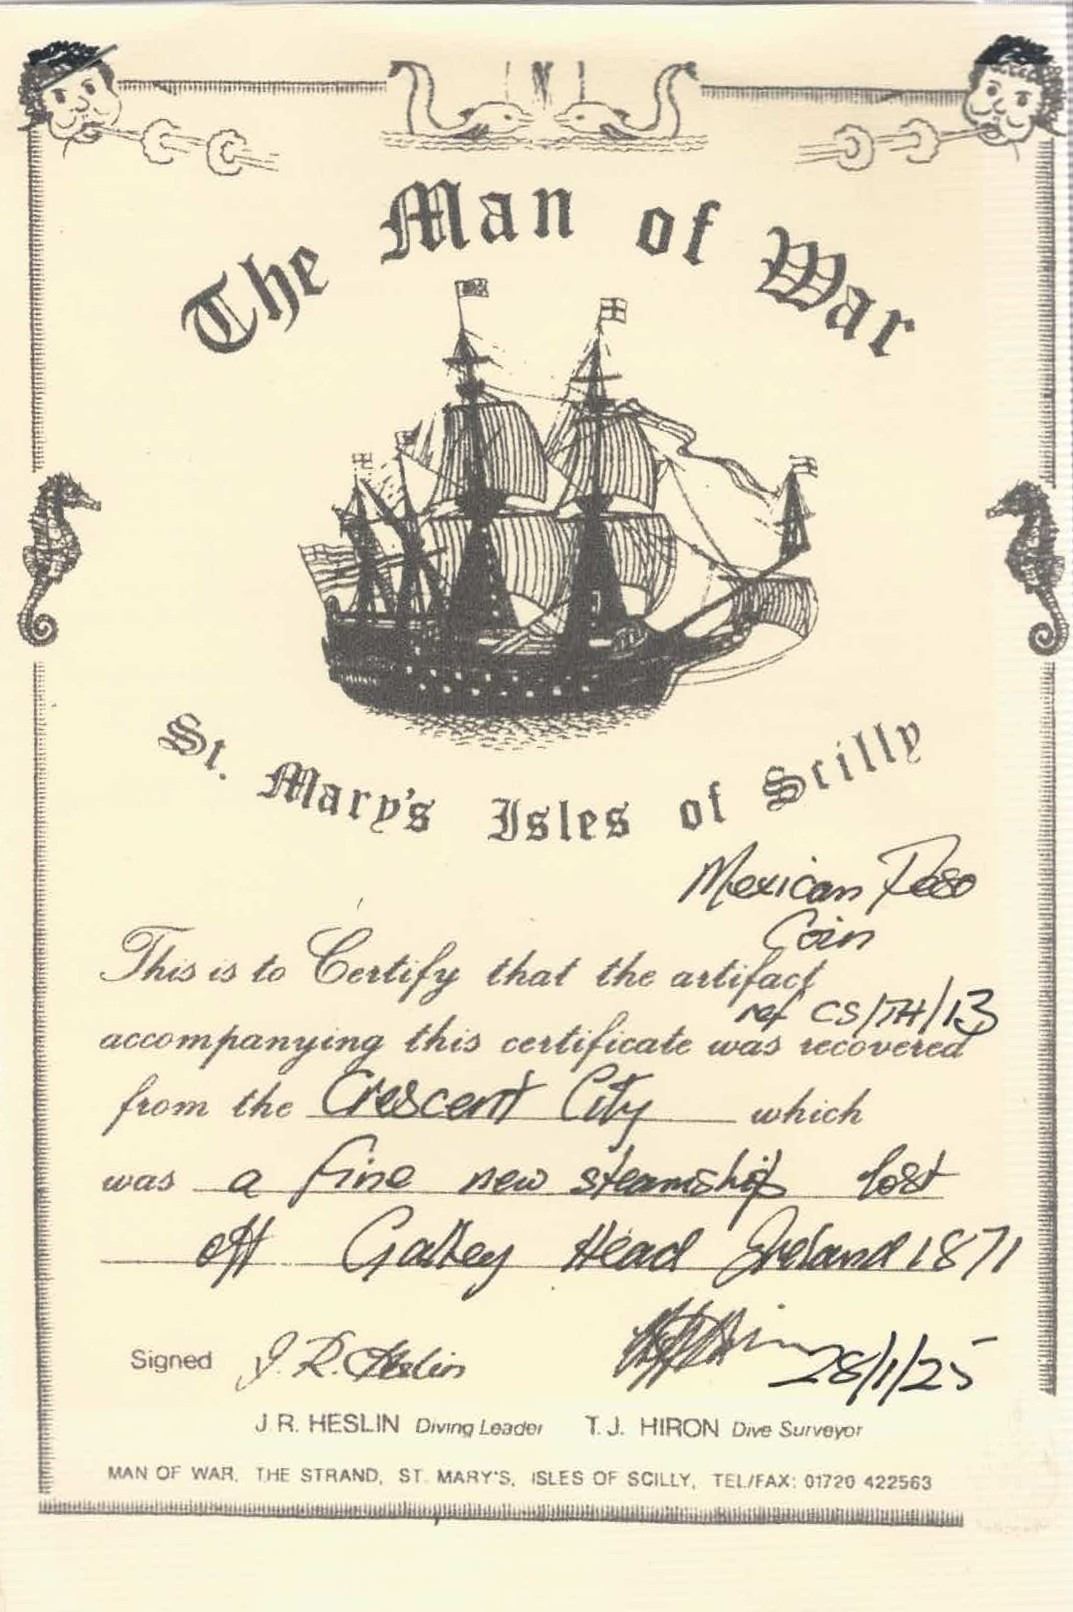 The Man of War
St. Mary's Isles of Scilly
Mexican Peso
Coin
This is to Certify that the artifact
ref CS/TH/13
accompanying this certificate was recovered
from the Crescent City which
was a fine new steamship lost
off Galley Head Ireland 1871
Signed J. R. Heslin 28/1/25
J R. HESLIN Diving Leader T. J. HIRON Dive Surveyor
MAN OF WAR, THE STRAND, ST. MARY'S, ISLES OF SCILLY, TEL/FAX: 01720 422563